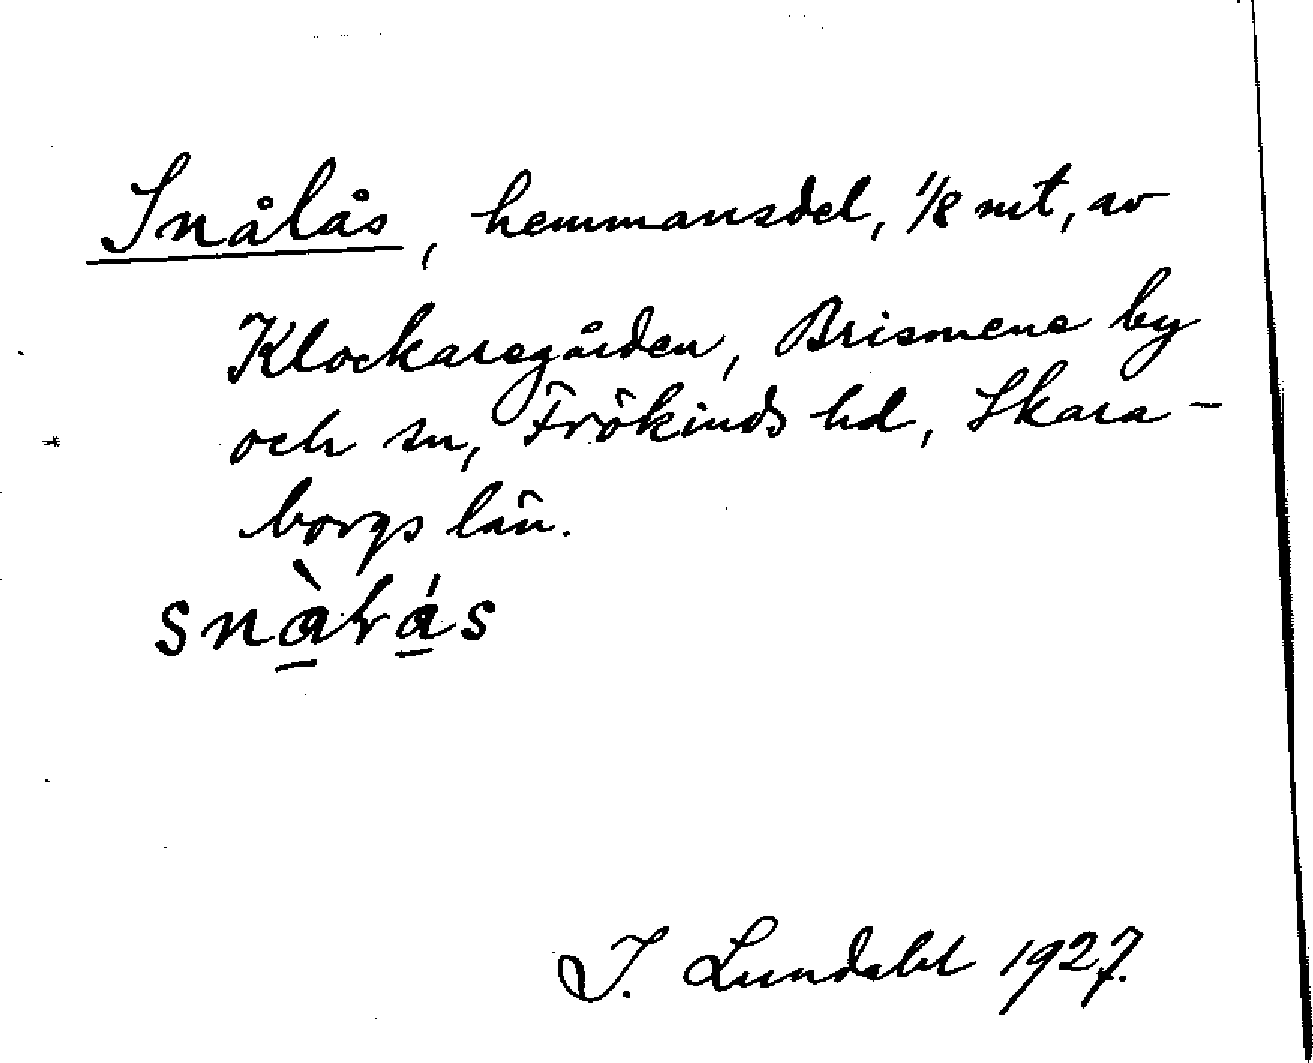 Snålås, hemmansdel, 1/8 mt, av
Klockaregården, Brismene by
och sn, Frökinds hd, Skara-
borgs län.
I. Lundahl 1927.